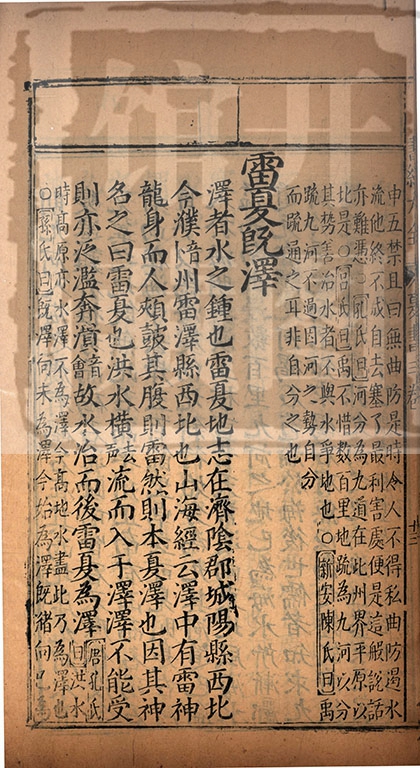 申五禁且曰無曲防是時令人不得私曲防遏水
流他終不成自去塞了最利害處便是這般說話
亦難憑○孔氏曰河分為九道在此州界平原以
北是○呂氏曰禹不惜數百里地疏為九河以分
其勢善治水者不與水爭地也○新安陳氏曰禹
疏九河不過因河之勢自分
而疏通之耳非自分之也
雷夏既澤
澤者水之鍾也雷夏地志在濟陰郡城陽縣西北
今濮音卜州雷澤縣西北也山海經云澤中有雷神
龍身而人頰鼓其腹則雷然則本夏澤也因其神
名之曰雷夏也洪水橫去聲流而入于澤澤不能受
則亦泛濫奔潰音會故水治而後雷夏為澤唐孔氏曰洪水
時高原亦水澤不為澤今高地水盡此乃為澤也
○孫氏曰既澤向未為澤今始為澤既豬向已為